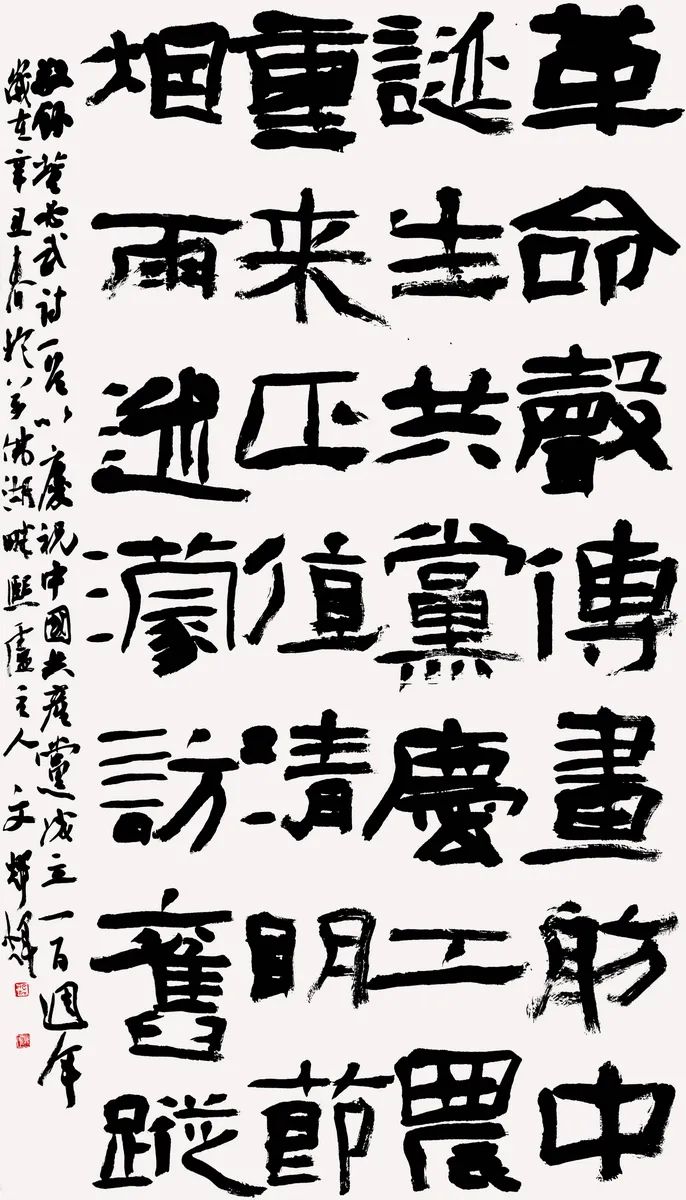 革命聲傳畫舫中
誕生共黨慶工農
重来正值清明節
烟雨迷濛訪舊蹤
敬錄董必武詩一首以慶祝中國共產黨成立一百週年
歲在辛丑春於湖畔熙廬主人文輝